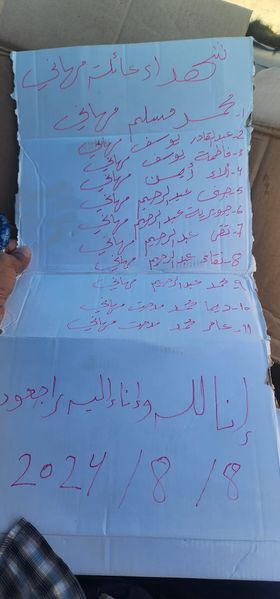 شهداء عائلة مهاني
1- محمد مسلم مهاني
2- عبدالقادر يوسف مهاني
3- فاطمة يوسف مهاني
4- الاء أيمن مهاني
5- يحيى عبدالرحيم مهاني
6- جويرية عبدالرحيم مهاني
7- تقى عبدالرحيم مهاني
8- نقاء عبدالرحيم مهاني
9- محمد عبدالرحيم مهاني
10- ديما محمد مدحت مهاني
11- عامر محمد مدحت مهاني
إنا لله وإنا إليه راجعون
2024/8/8